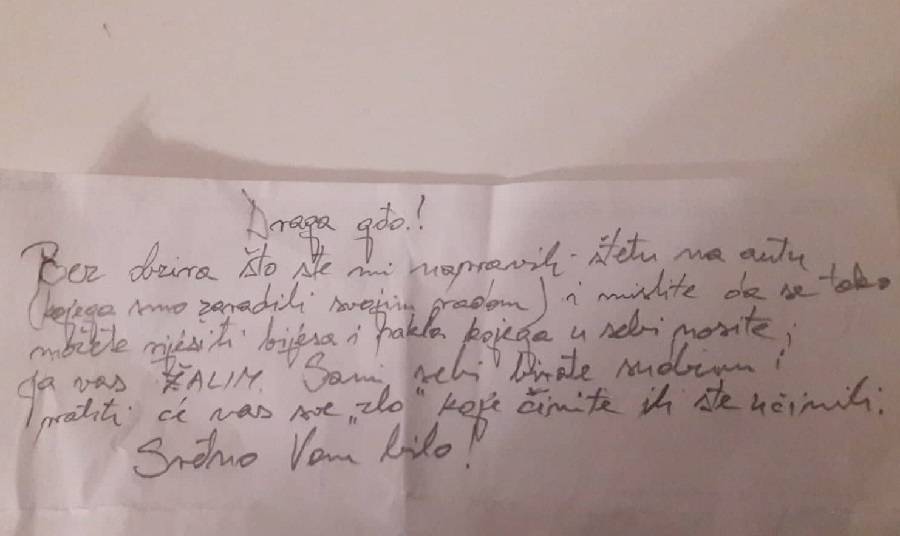 Draga gđo.!
Bez obzira što ste mi napravili štetu na autu
(kojega smo zaradili svojim radom) i mislite da se tako
možete riješiti bijesa i pakla kojega u sebi nosite,
ja vas ŽALIM. Sami sebi birate sudbinu i
pratiti će vas sve "zlo" koje činite ili ste učinili.
Sretno Vam bilo!